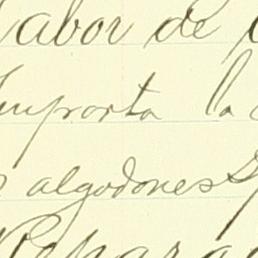 labor de
Importa la
algodones